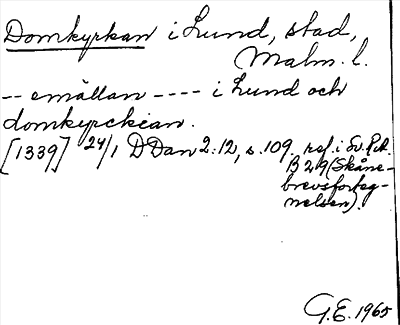 Domkyrkan i Lund, stad,
Malm. l.
-- emällan ---- i Lund och
domkyrckian.
[1339] 24/1 DDan 2:12, s. 109. ref. i Sv. Rik.
B 29 (Skåne-
brevsforteg-
nelsen).
G.E. 1965